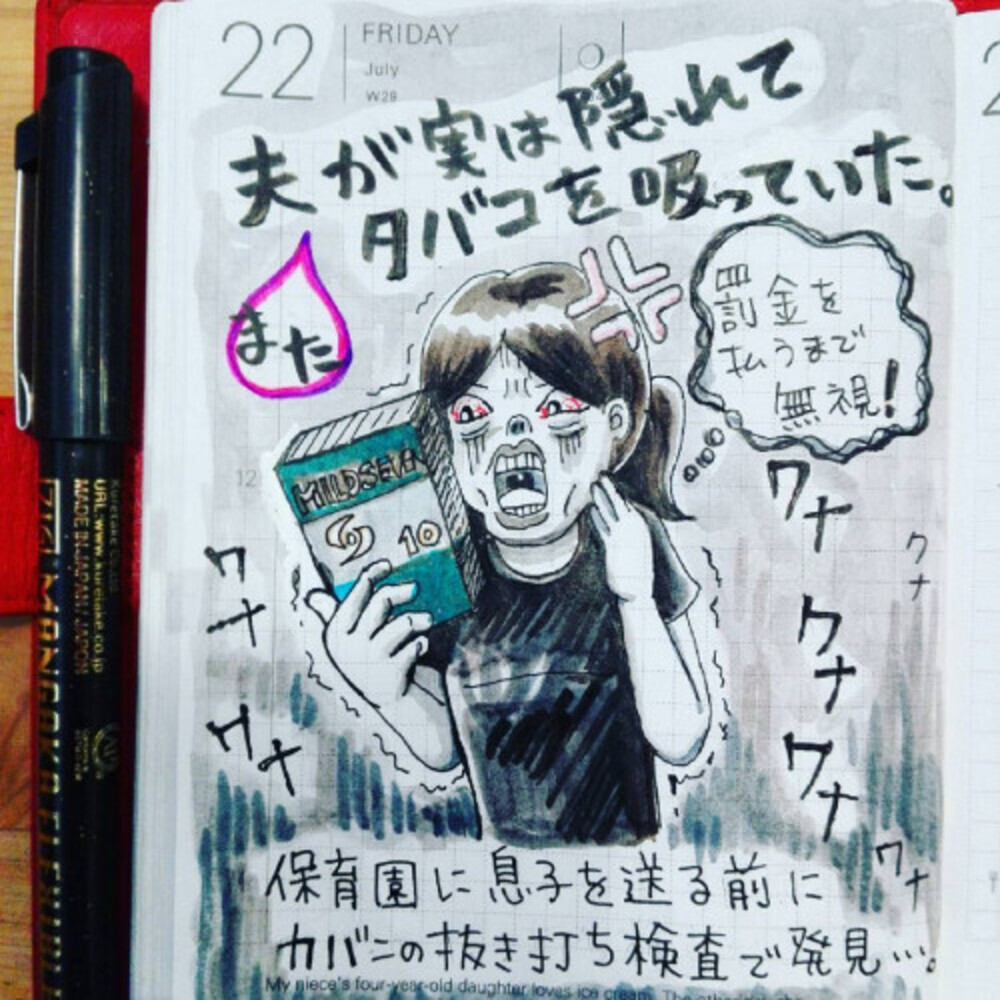 22
FRIDAY
July
W29
夫が実は隠れて
タバコを吸っていた。
また
罰金を
払うまで
無視!
MILDSEVEN
10
12
ワナ
ワナ
ワナ
ワナ
ワナ
ワナ
ワナ
保育園に息子を送る前に
カバンの抜き打ち検査で発見…。
My niece's four-year-old daughter loves ice cream. The other
Kuretake Co.,Ltd.
URL:www.kuretake.co.jp
MADE IN JAPAN / JAPON